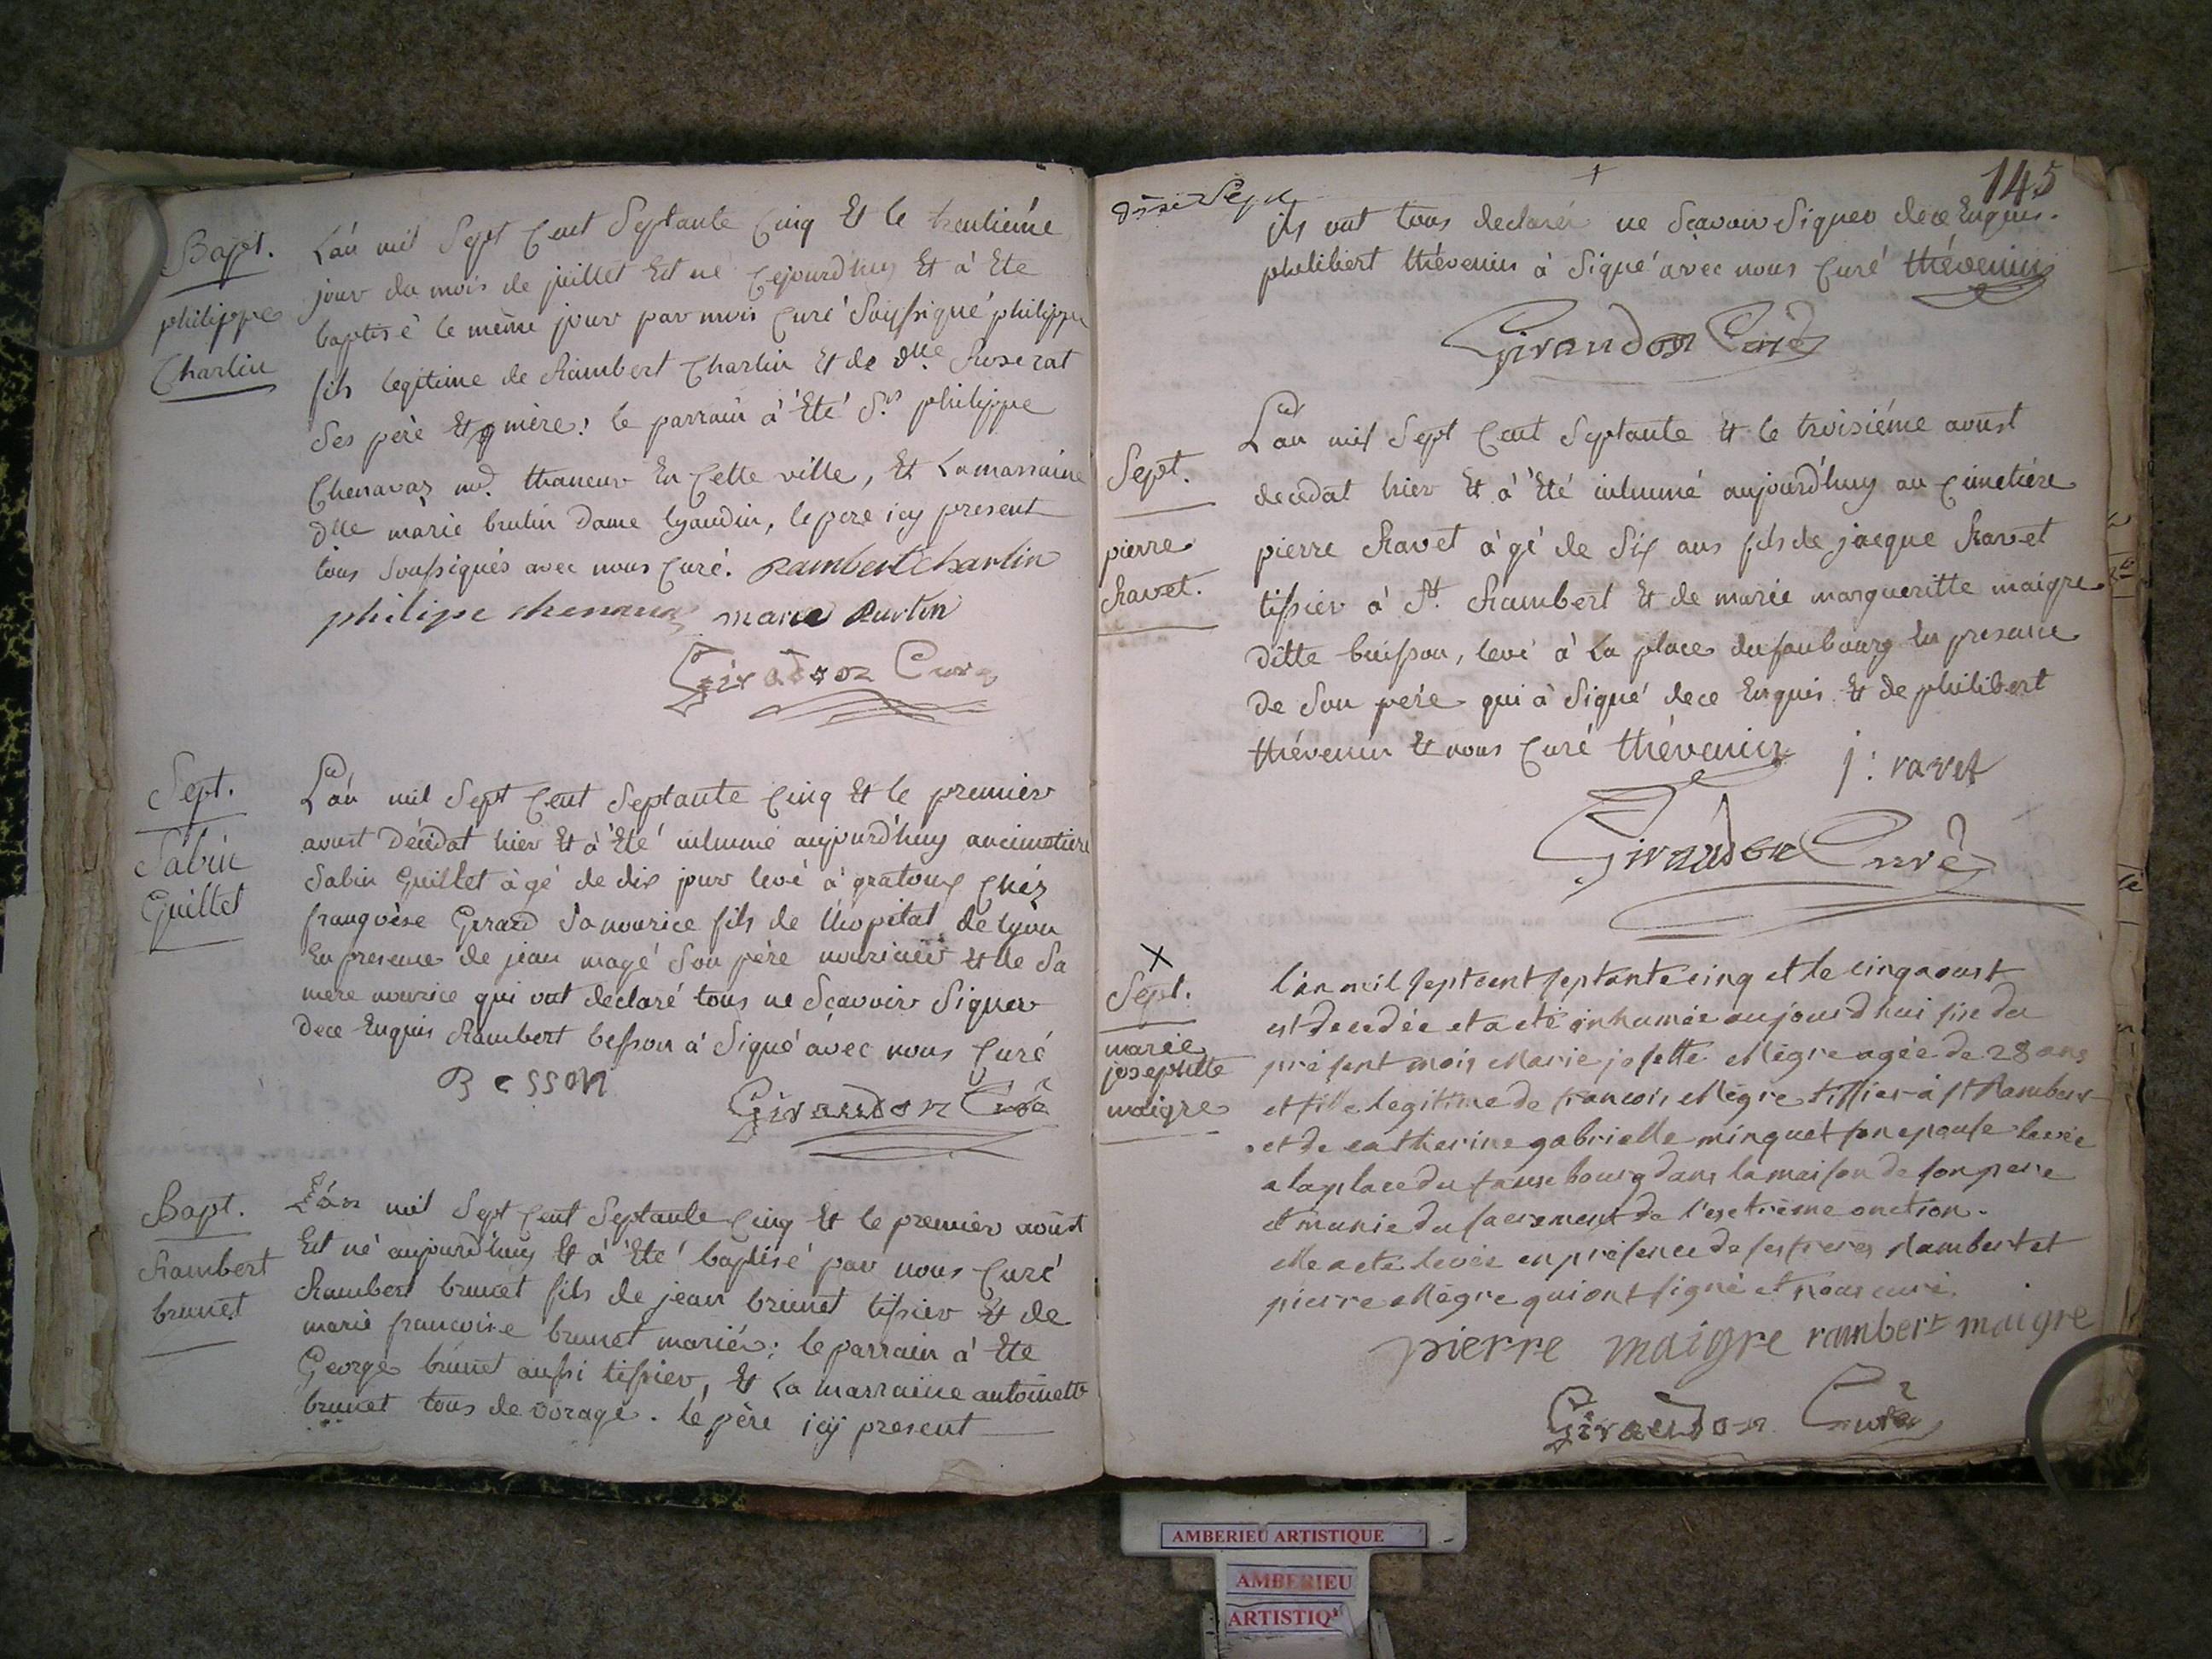 Bapt.
philippe
Charlin
L'an mil Sept Cent Septante Cinq Et le trentiéme
jour du mois de juillet Est né Cejourd'huy Et à Eté
baptisé le même jour par moi Curé Soussigné philippe
fils legitime de Rambert Charlin Et de dlle. Rose rat
Ses père Et mère; le parrain à Eté Sr. philippe
Chenavaz md. thaneur En Cette ville, Et La marraine
dlle marie brulin dame lyaudin, le pere icy present
tous Soussignés avec nous Curé. Rambert Charlin
philipe chenavaz marie
Giraudon Curé
Sept.
Sabin
Guillet
L'an mil Sept Cent Septante Cinq Et le premier
aoust décédat hier Et à Eté inhumé aujourd'huy au cimetiere
Sabin Guillet àgé de dix jour levé à gratoux Chéz
françoise Girard Sa nourice fils de l'hopital de lyon
En presence de jean magé Son père nouricier Et de Sa
mere nourice qui ont declaré tous ne Sçavoir Signer
dece Enquis Rambert besson à Signé avec nous Curé
BESSON
Giraudon Curé
Bapt.
Rambert
brunet
L'an mil Sept Cent Septante Cinq Et le premier août
Est né aujourd'huy Et à Eté baptisé par nous Curé
Rambert brunet fils de jean brunet tissier Et de
marie francoise brunet mariés; le parrain à Eté
George brunet aussi tissier, Et La marraine antoinette
brunet tous de vorage. le père icy present
145
ils ont tous declarér ne Sçavoir Signer dece Enquis.
philibert thévenin à Signé avec nous Curé thévenin
Giraudon Curé
Sept.
pierre
Ravet.
L'an mil Sept Cent Septante Et le troisiéme aoust
decedat hier Et à Eté inhumé aujourd'huy au Cimetiére
pierre Ravet àgé de Six ans fils de jacque Ravet
tissier à St. Rambert Et de marie margueritte maigre
ditte buisson, levé à La place du faubourg En presance
de Son père qui à Signé dece Enquis Et de philibert
thévenin Et nous Curé thévenin j: ravet
Giraudon Curé
X
Sept.
marie
josephtte
maigre
l'an mil sept cent septante cinq et le cinq aoust
est decedée et a eté inhumée aujourd'hui six du
présent mois Marie josette Mégre agée de 28 ans
et fille legitime de francois Mégre tissier à st Rambert
et de catherine gabrielle minguet son epouse levée
a la place du fauxbourg dans la maison de son pere
et munie du sacrement de l'extrème onction.
elle a eté levée en présence de ses freres Rambert et
pierre Mégre qui ont signé et nous curé.
pierre maigre rambert maigre
Giraudon Curé
AMBERIEU ARTISTIQUE
AMBERIEU
ARTISTIQ